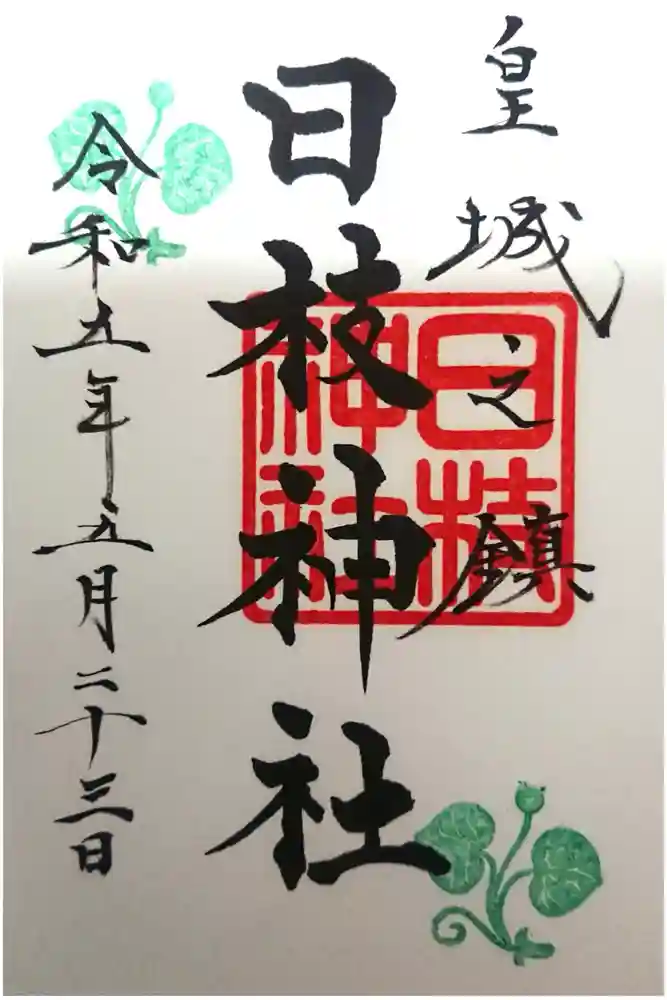 皇城之鎮
日枝神社
日枝
神社
令和五年五月二十三日